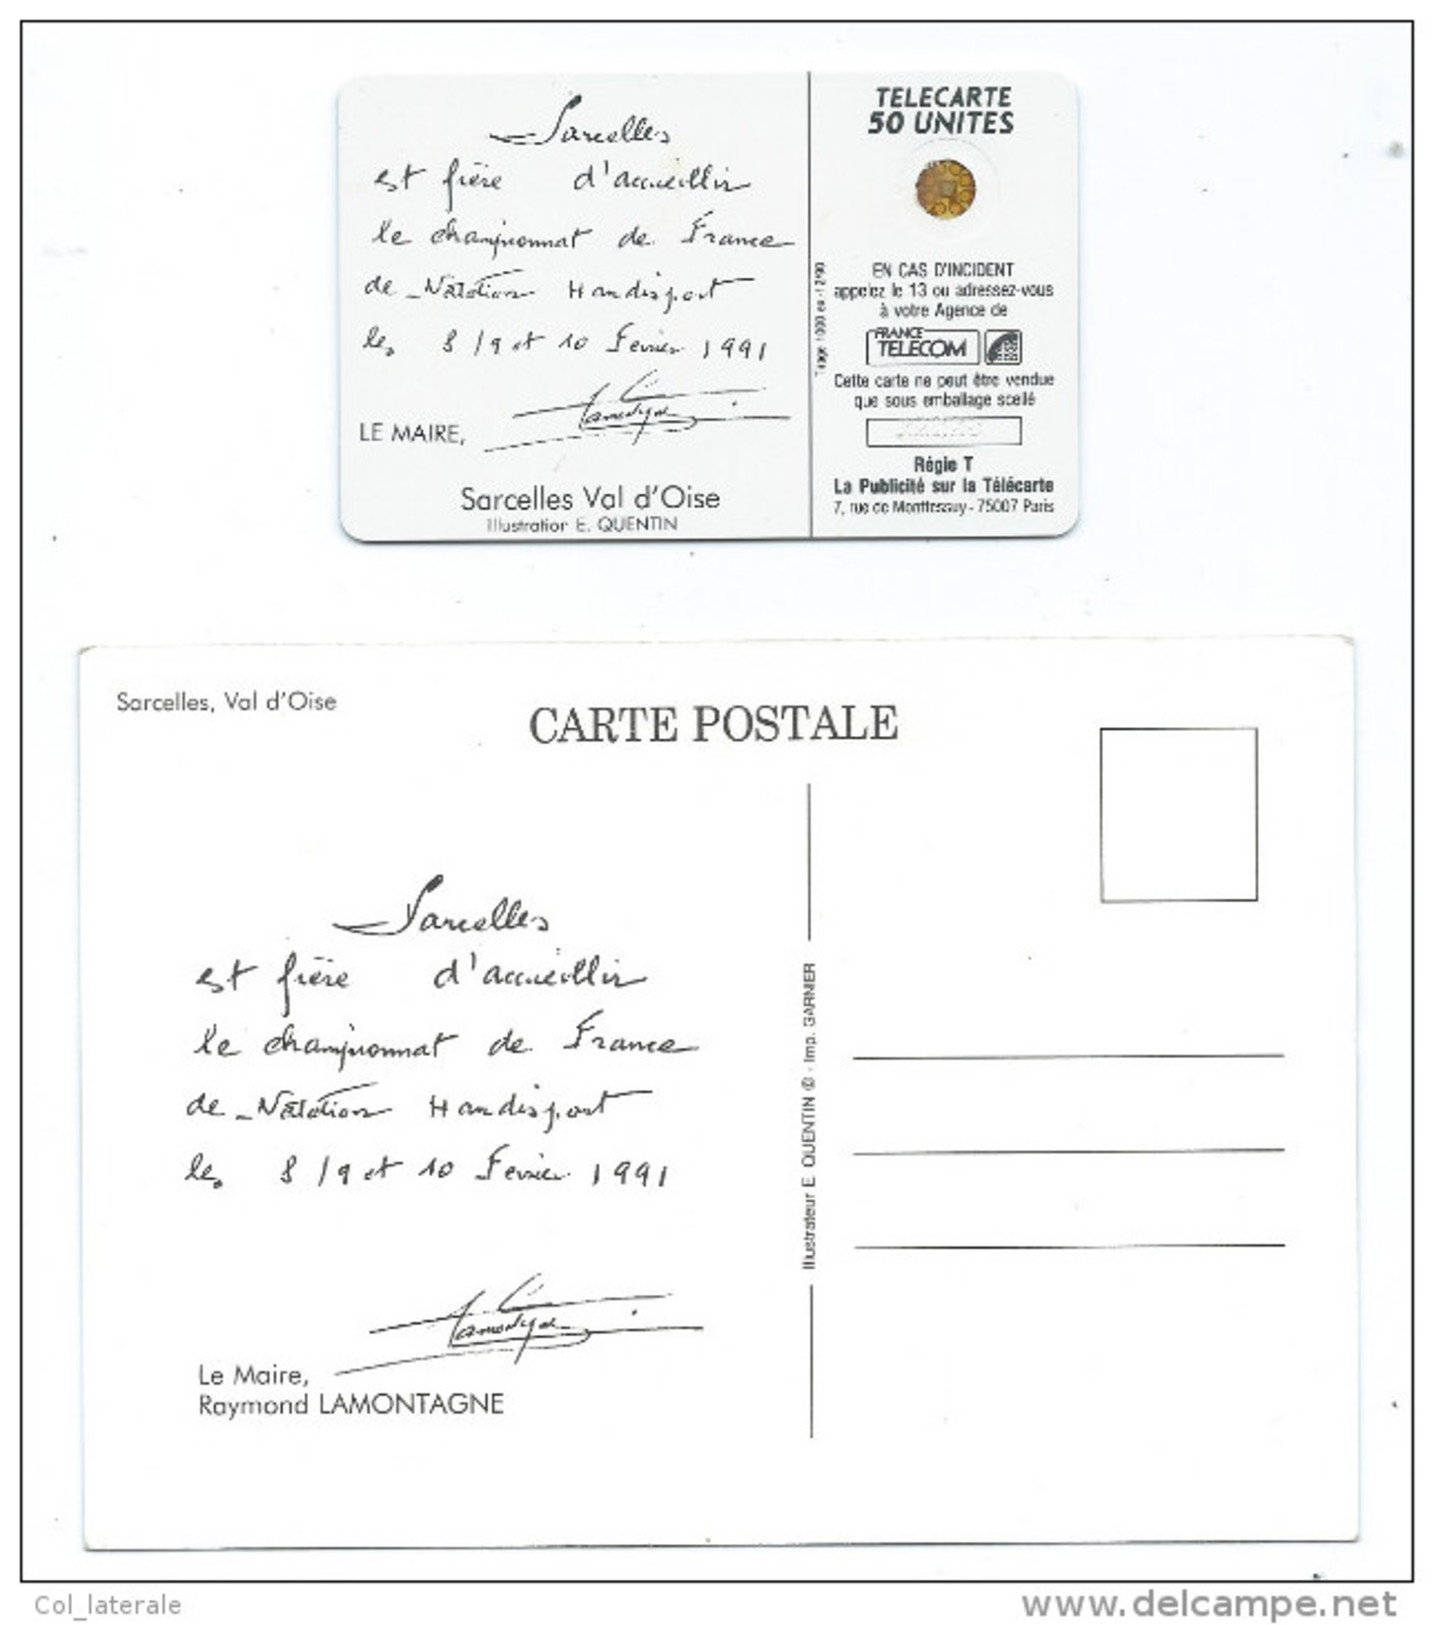 Sarcelles
est fière d'accueillir
le championnat de France
de Natation Handisport
les 8/9 et 10 Février 1991
LE MAIRE,
Sarcelles Val d'Oise
illustration E. QUENTIN
Tirage 1000 ex - 12/90
TELECARTE
50 UNITES
EN CAS D'INCIDENT
appelez le 13 ou adressez-vous
à votre Agence de
FRANCE
TELECOM
Cette carte ne peut être vendue
que sous emballage scellé
Régie T
La Publicité sur la Télécarte
7, rue de Monttessuy - 75007 Paris
Sarcelles, Val d'Oise
CARTE POSTALE
Sarcelles
est fière d'accueillir
le championnat de France
de Natation Handisport
les 8/9 et 10 Février 1991
Le Maire,
Raymond LAMONTAGNE
Illustrateur E. QUENTIN © - Imp. GARNIER
Col_laterale
www.delcampe.net